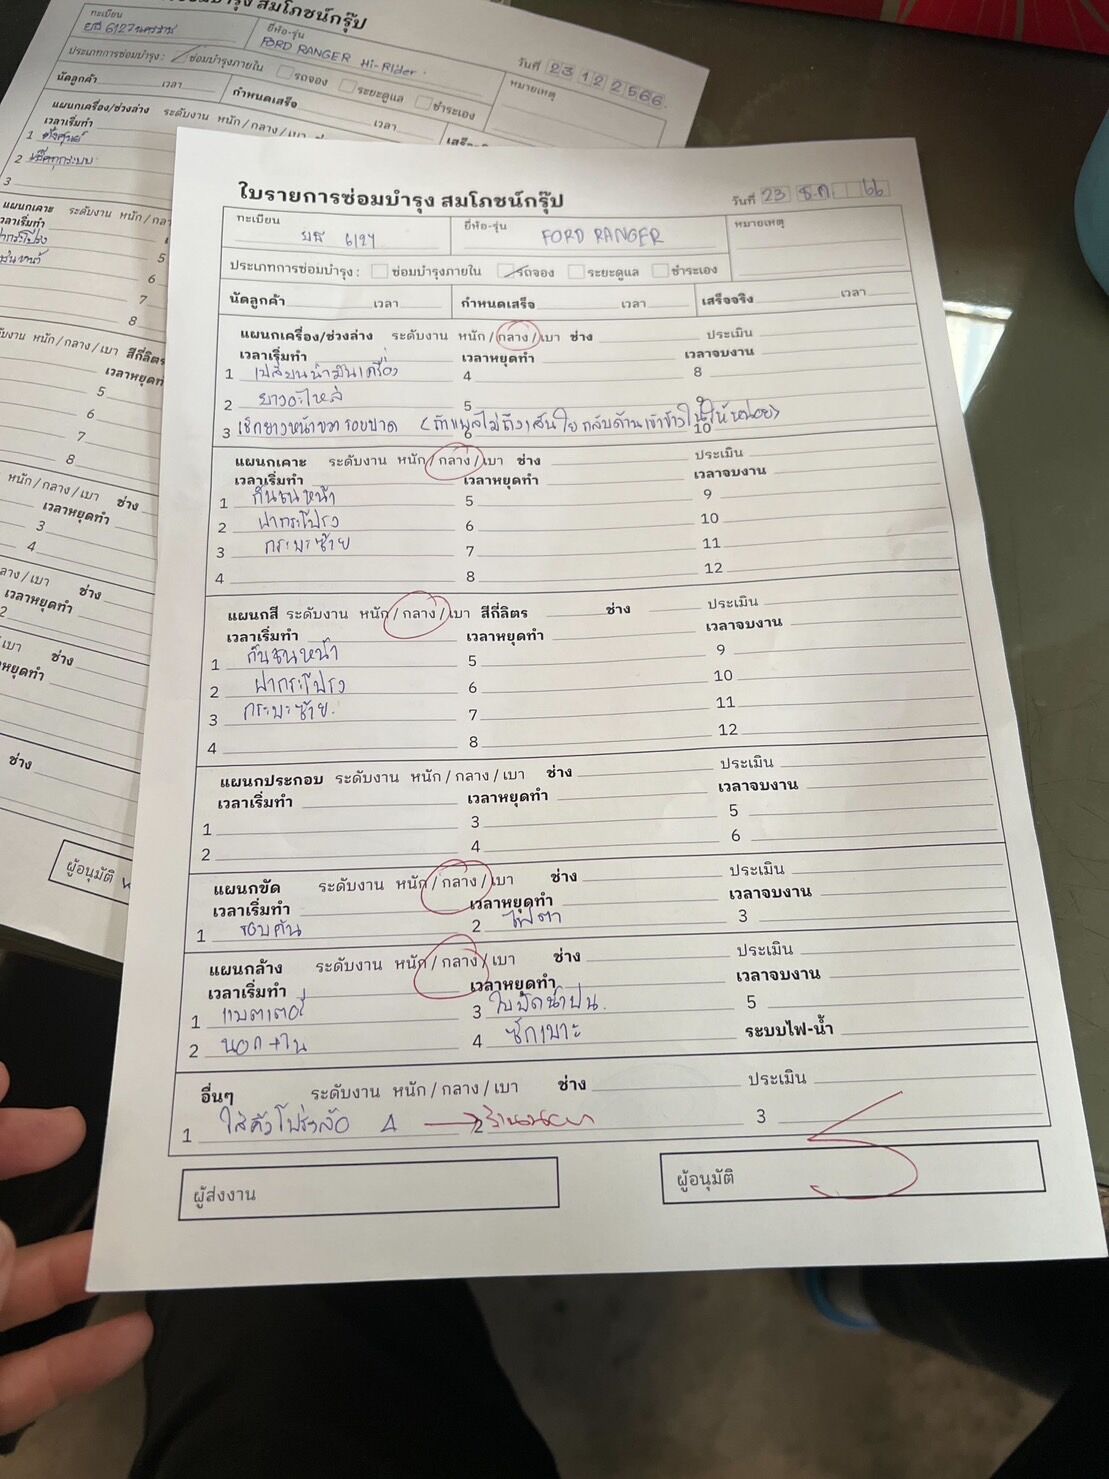 ซ่อมบำรุง สมโภชน์กรุ๊ป
ทะเบียน
ยี่ห้อ-รุ่น
FORD RANGER Hi-Rider
วันที่ 23 12 2566
ประเภทการซ่อมบำรุง : ซ่อมบำรุงภายใน รถจอง ระยะดูแล ชำระเอง
หมายเหตุ
นัดลูกค้า เวลา กำหนดเสร็จ เวลา
แผนกเครื่อง/ช่วงล่าง ระดับงาน หนัก / กลาง / เบา
เวลาเริ่มทำ
1 ตั้งศูนย์
2 เช็คทุกระบบ
3
แผนกเคาะ ระดับงาน หนัก / กลา
เวลาเริ่มทำ
ฝากระโปรง 5
6
7
8
ระดับงาน หนัก / กลาง / เบา สีกี่ลิตร
เวลาหยุดทำ
5
6
7
8
หนัก / กลาง / เบา ช่าง
เวลาหยุดทำ
3
4
กลาง / เบา ช่าง
เวลาหยุดทำ
2
/ เบา ช่าง
หยุดทำ
ช่าง
ผู้อนุมัติ
ใบรายการซ่อมบำรุง สมโภชน์กรุ๊ป
วันที่ 23 ธ.ค. 66
ทะเบียน ยี่ห้อ-รุ่น หมายเหตุ
FORD RANGER
ประเภทการซ่อมบำรุง : ซ่อมบำรุงภายใน รถจอง ระยะดูแล ชำระเอง
นัดลูกค้า เวลา กำหนดเสร็จ เวลา เสร็จจริง เวลา
แผนกเครื่อง/ช่วงล่าง ระดับงาน หนัก / กลาง / เบา ช่าง ประเมิน
เวลาเริ่มทำ เวลาหยุดทำ เวลาจบงาน
1 เปลี่ยนน้ำมันเครื่อง 4 8
2 ยางอะไหล่ 5 9
3 เช็กยางหน้าขวา รอยบาด (ถ้าแผลไม่ถึงเส้นใย กลับด้านเข้าข้างในให้หน่อย) 6 10
แผนกเคาะ ระดับงาน หนัก / กลาง / เบา ช่าง ประเมิน
เวลาเริ่มทำ เวลาหยุดทำ เวลาจบงาน
1 กันชนหน้า 5 9
2 ฝากระโปรง 6 10
3 กระบะซ้าย 7 11
4 8 12
แผนกสี ระดับงาน หนัก / กลาง / เบา สีกี่ลิตร ช่าง ประเมิน
เวลาเริ่มทำ เวลาหยุดทำ เวลาจบงาน
1 กันชนหน้า 5 9
2 ฝากระโปรง 6 10
3 กระบะซ้าย 7 11
4 8 12
แผนกประกอบ ระดับงาน หนัก / กลาง / เบา ช่าง ประเมิน
เวลาเริ่มทำ เวลาหยุดทำ เวลาจบงาน
1 3 5
2 4 6
แผนกขัด ระดับงาน หนัก / กลาง / เบา ช่าง ประเมิน
เวลาเริ่มทำ เวลาหยุดทำ เวลาจบงาน
1 รอบคัน 2 ไฟตา 3
แผนกล้าง ระดับงาน หนัก / กลาง / เบา ช่าง ประเมิน
เวลาเริ่มทำ เวลาหยุดทำ เวลาจบงาน
1 แบตเตอรี่ 3 ใบปัดน้ำฝน 5
2 นอก+ใน 4 ซักเบาะ ระบบไฟ-น้ำ
อื่นๆ ระดับงาน หนัก / กลาง / เบา ช่าง ประเมิน
1 ใส่คิ้วโป่งล้อ 4 2 3
ผู้ส่งงาน
ผู้อนุมัติ